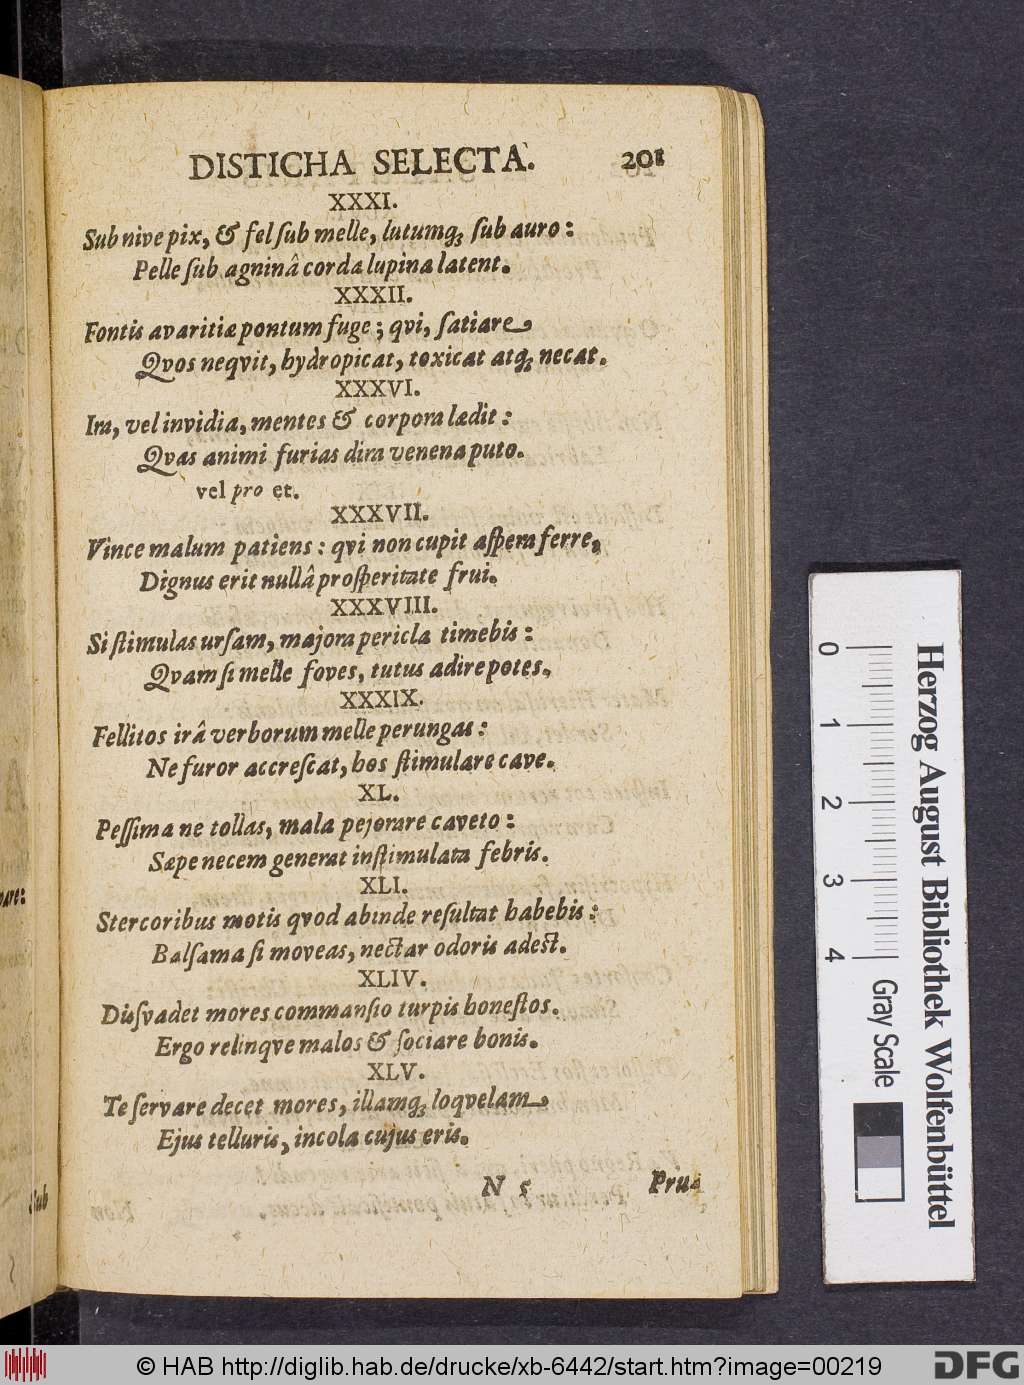 DISTICHA SELECTA. 201
XXXI.
Sub nive pix, & fel ſub melle, lutumq; ſub auro:
Pelle ſub agninâ corda lupina latent.
XXXII.
Fontis avaritiæ pontum fuge; qvi, ſatiare
Qvos neqvit, hydropicat, toxicat atq; necat.
XXXVI.
Ira, vel invidia, mentes & corpora lædit:
Qvas animi furias dira venena puto.
vel pro et.
XXXVII.
Vince malum patiens: qvi non cupit aſpera ferre,
Dignus erit nullâ proſperitate frui.
XXXVIII.
Si ſtimulas urſam, majora pericla timebis:
Qvam ſi melle foves, tutus adire potes.
XXXIX.
Fellitos irâ verborum melle perungas:
Ne furor accreſcat, hos ſtimulare cave.
XL.
Peſſima ne tollas, mala pejorare caveto:
Sæpe necem generat inſtimulata febris.
XLI.
Stercoribus motis qvod abinde reſultat habebis:
Balſama ſi moveas, nectar odoris adeſt.
XLIV.
Disſvadet mores commanſio turpis honeſtos.
Ergo relinqve malos & ſociare bonis.
XLV.
Te ſervare decet mores, illamq; loqvelam
Ejus telluris, incola cujus eris.
N 5 Pru-
pare:
Sub
0 1 2 3 4
Herzog August Bibliothek Wolfenbüttel
Gray Scale
© HAB http://diglib.hab.de/drucke/xb-6442/start.htm?image=00219
DFG